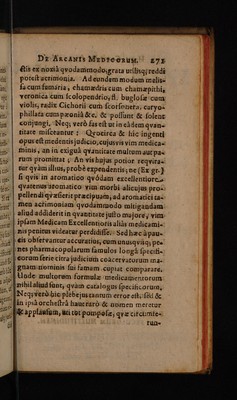 DE ARCANIS MEDICORUM. 271
ctis ex noxiâ quodammodo, grata utilisq; reddi
potest acrimonia. Ad eundem modum melis-
sa cum fumáriâ, chamædris cum chamæpithi,
veronica cum scolopendrio, fl. buglosæ cum
violis, radix Cichorii cum scorsonera, caryo-
phillata cum pæoniâ &c. & possunt & solent
conjungi. Neq; verò fas est ut in eâdem quan-
titate misceantur : Quocirca & hic ingenti
opus est medentis judicio, cujusvis vim medica-
minis, an in exiguâ quantitate multum aut pa-
rum promittat ; An vis hujus potior requira-
tur quàm illius, probè expendentis; ne (Ex gr.)
si quis in aromatico quódam excellentiore,
quatenus aromatico vim morbi alicujus pro-
pellendi quæserit præcipuam, ad aromatici ta-
men acrimoniam quodammodo mitigandam
aliud addiderit in quantitate justo majore, vim
ipsam Medicam Excellentioris aliàs medicami-
nis penitus videatur perdidisse. Sed hæc à pau-
cis observantur accuratiùs, cum unusquisq; pe-
nes pharmacopolarum famulos longâ specifi-
corum serie citra judicium coacervatorum ma-
gnam nominis sui famam cupiat comparare.
Unde multorum formulæ medicamentorum
nihil aliud sunt, quàm catalogus specificorum.
Neq; verò hic plebejus tantum error est; sibi &
in ipsâ orchestrâ
& applausum, ut tot pomposæ, quæ circumfe-
run-